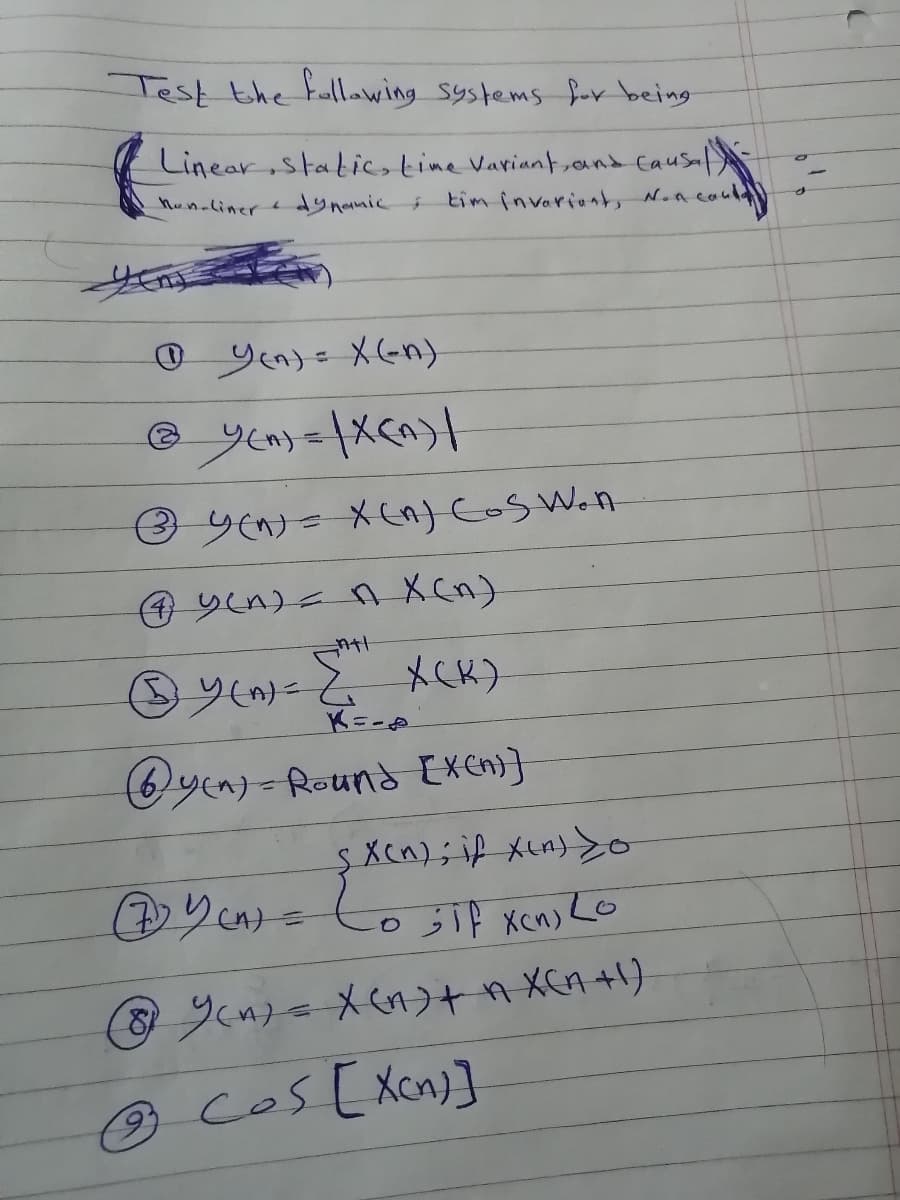 Test the following systems for being
Linear, static, time variant, and causal
Non-liner & dynamic ; tim invariant, Non
① y(n) = X(-n)
② y(n) = |X(n)|
③ y(n) = X(n) Cos Won
④ y(n) = n X(n)
n+1
⑤ y(n) = Σ X(K)
K=-∞
⑥ y(n) = Round [X(n)]
{ X(n) ; if X(n) ≥ 0
⑦ y(n) = { 0 ; if X(n) < 0
⑧ y(n) = X(n) + n X(n+1)
⑨ Cos [X(n)]